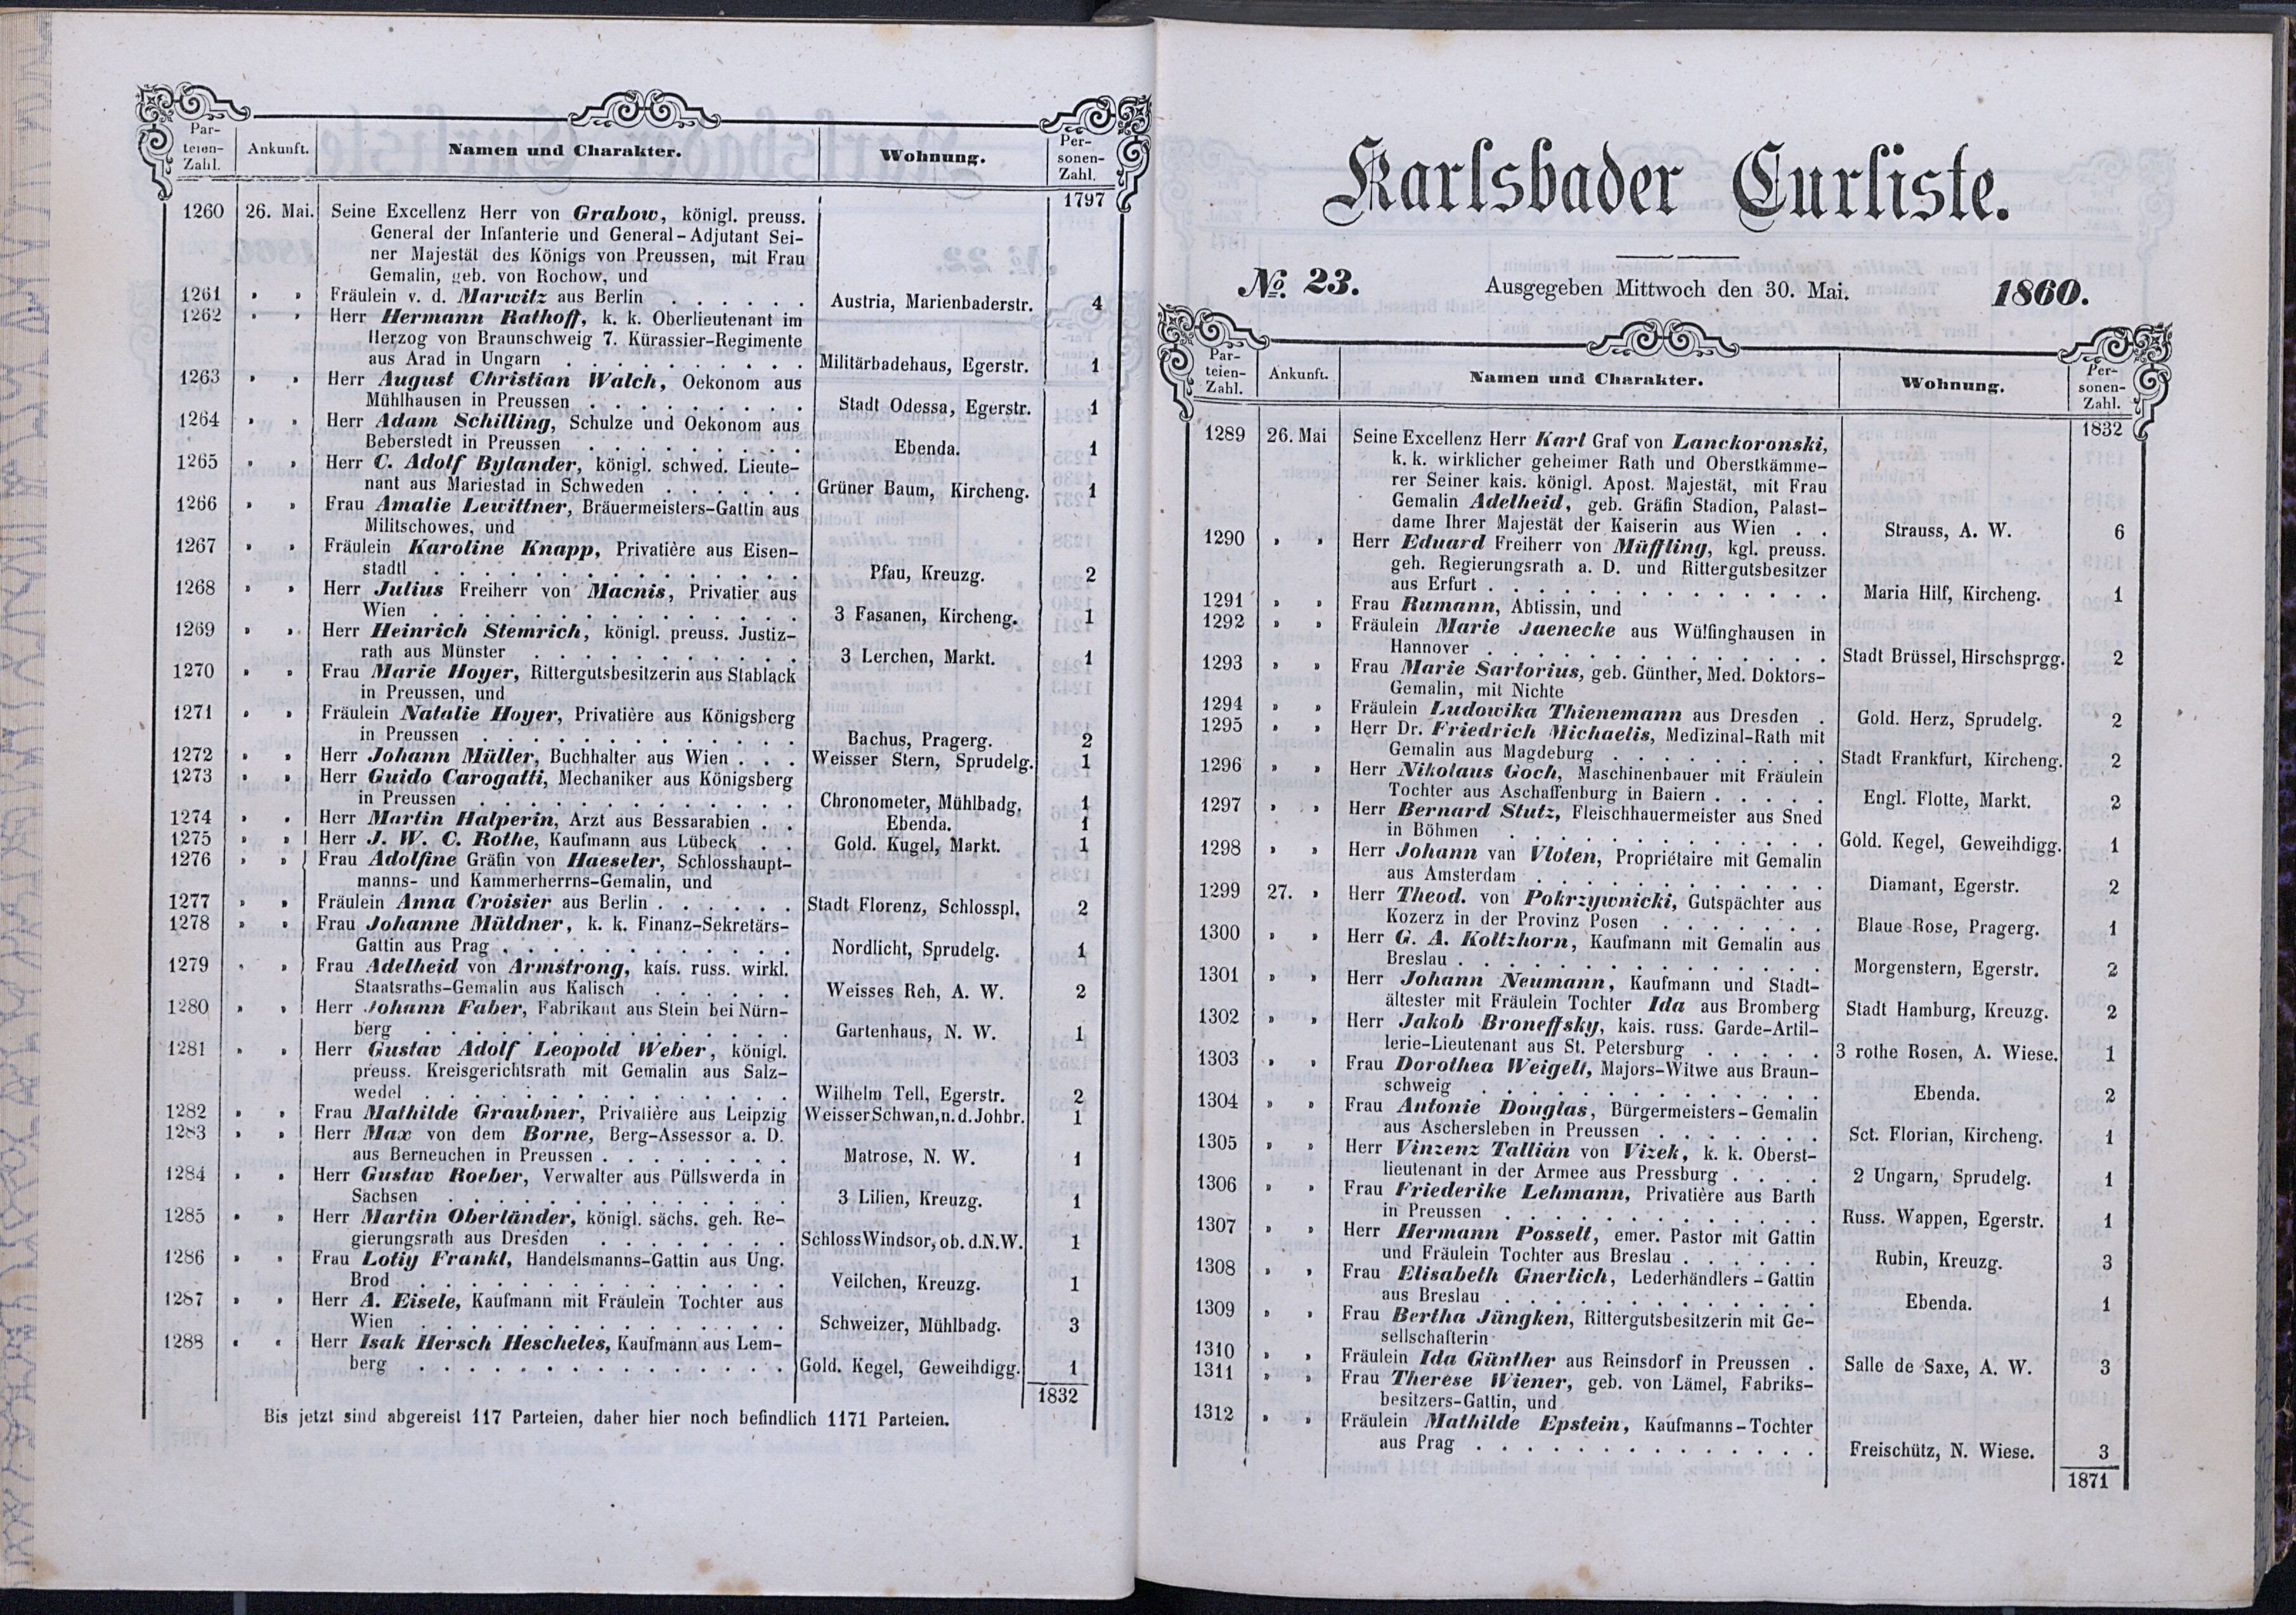 Par-
teien-
Zahl.
Ankunft.
Namen und Charakter.
Wohnung.
Per-
sonen-
Zahl.
1797
1260 26. Mai. Seine Excellenz Herr von Grabow, königl. preuss.
General der Infanterie und General-Adjutant Sei-
ner Majestät des Königs von Preussen, mit Frau
Gemalin, geb. von Rochow, und
1261 » » Fräulein v. d. Marwitz aus Berlin . . . . . . Austria, Marienbaderstr. 4
1262 » » Herr Hermann Rathoff, k. k. Oberlieutenant im
Herzog von Braunschweig 7. Kürassier-Regimente
aus Arad in Ungarn . . . . . . . . . . Militärbadehaus, Egerstr. 1
1263 » » Herr August Christian Walch, Oekonom aus
Mühlhausen in Preussen . . . . . . . . . Stadt Odessa, Egerstr. 1
1264 » » Herr Adam Schilling, Schulze und Oekonom aus
Beberstedt in Preussen . . . . . . . . . Ebenda. 1
1265 » » Herr C. Adolf Bylander, königl. schwed. Lieute-
nant aus Mariestad in Schweden . . . . . . Grüner Baum, Kircheng. 1
1266 » » Frau Amalie Lewittner, Bräuermeisters-Gattin aus
Militschowes, und
1267 » » Fräulein Karoline Knapp, Privatière aus Eisen-
stadtl . . . . . . . . . . . . . . Pfau, Kreuzg. 2
1268 » » Herr Julius Freiherr von Macnis, Privatier aus
Wien . . . . . . . . . . . . . . 3 Fasanen, Kircheng. 1
1269 » » Herr Heinrich Stemrich, königl. preuss. Justiz-
rath aus Münster . . . . . . . . . . 3 Lerchen, Markt. 1
1270 » » Frau Marie Hoyer, Rittergutsbesitzerin aus Stablack
in Preussen, und
1271 » » Fräulein Natalie Hoyer, Privatière aus Königsberg
in Preussen . . . . . . . . . . . . Bachus, Pragerg. 2
1272 » » Herr Johann Müller, Buchhalter aus Wien . . . Weisser Stern, Sprudelg. 1
1273 » » Herr Guido Carogatti, Mechaniker aus Königsberg
in Preussen . . . . . . . . . . . . Chronometer, Mühlbadg. 1
1274 » » Herr Martin Halperin, Arzt aus Bessarabien . . Ebenda. 1
1275 » » Herr J. W. C. Rothe, Kaufmann aus Lübeck . . Gold. Kugel, Markt. 1
1276 » » Frau Adolfine Gräfin von Haeseler, Schlosshaupt-
manns- und Kammerherrns-Gemalin, und
1277 » » Fräulein Anna Croisier aus Berlin . . . . . . Stadt Florenz, Schlosspl. 2
1278 » » Frau Johanne Müldner, k. k. Finanz-Sekretärs-
Gattin aus Prag . . . . . . . . . . . Nordlicht, Sprudelg. 1
1279 » » Frau Adelheid von Armstrong, kais. russ. wirkl.
Staatsraths-Gemalin aus Kalisch . . . . . . Weisses Reh, A. W. 2
1280 » » Herr Johann Faber, Fabrikant aus Stein bei Nürn-
berg . . . . . . . . . . . . . . Gartenhaus, N. W. 1
1281 » » Herr Gustav Adolf Leopold Weber, königl.
preuss. Kreisgerichtsrath mit Gemalin aus Salz-
wedel . . . . . . . . . . . . . . Wilhelm Tell, Egerstr. 2
1282 » » Frau Mathilde Graubner, Privatière aus Leipzig Weisser Schwan, n. d. Johbr. 1
1283 » » Herr Max von dem Borne, Berg-Assessor a. D.
aus Berneuchen in Preussen . . . . . . . . Matrose, N. W. 1
1284 » » Herr Gustav Roeber, Verwalter aus Püllswerda in
Sachsen . . . . . . . . . . . . . 3 Lilien, Kreuzg. 1
1285 » » Herr Martin Oberländer, königl. sächs. geh. Re-
gierungsrath aus Dresden . . . . . . . . Schloss Windsor, ob. d. N. W. 1
1286 » » Frau Lotiy Frankl, Handelsmanns-Gattin aus Ung.
Brod . . . . . . . . . . . . . . Veilchen, Kreuzg. 1
1287 » » Herr A. Eisele, Kaufmann mit Fräulein Tochter aus
Wien . . . . . . . . . . . . . . Schweizer, Mühlbadg. 3
1288 » » Herr Isak Hersch Hescheles, Kaufmann aus Lem-
berg . . . . . . . . . . . . . . Gold. Kegel, Geweihdigg. 1
1832
Bis jetzt sind abgereist 117 Parteien, daher hier noch befindlich 1171 Parteien.
Karlsbader Curliste.
No. 23. Ausgegeben Mittwoch den 30. Mai. 1860.
Par-
teien-
Zahl.
Ankunft.
Namen und Charakter.
Wohnung.
Per-
sonen-
Zahl.
1832
1289 26. Mai Seine Excellenz Herr Karl Graf von Lanckoronski,
k. k. wirklicher geheimer Rath und Oberstkämme-
rer Seiner kais. königl. Apost. Majestät, mit Frau
Gemalin Adelheid, geb. Gräfin Stadion, Palast-
dame Ihrer Majestät der Kaiserin aus Wien . . Strauss, A. W. 6
1290 » » Herr Eduard Freiherr von Müffling, kgl. preuss.
geh. Regierungsrath a. D. und Rittergutsbesitzer
aus Erfurt . . . . . . . . . . . . . Maria Hilf, Kircheng. 1
1291 » » Frau Rumann, Äbtissin, und
1292 » » Fräulein Marie Jaenecke aus Wülfinghausen in
Hannover . . . . . . . . . . . . . Stadt Brüssel, Hirschsprgg. 2
1293 » » Frau Marie Sartorius, geb. Günther, Med. Doktors-
Gemalin, mit Nichte
1294 » » Fräulein Ludowika Thienemann aus Dresden . Gold. Herz, Sprudelg. 2
1295 » » Herr Dr. Friedrich Michaelis, Medizinal-Rath mit
Gemalin aus Magdeburg . . . . . . . . . Stadt Frankfurt, Kircheng. 2
1296 » » Herr Nikolaus Goch, Maschinenbauer mit Fräulein
Tochter aus Aschaffenburg in Baiern . . . . . Engl. Flotte, Markt. 2
1297 » » Herr Bernard Stutz, Fleischhauermeister aus Sned
in Böhmen . . . . . . . . . . . . Gold. Kegel, Geweihdigg. 1
1298 » » Herr Johann van Vloten, Propriétaire mit Gemalin
aus Amsterdam . . . . . . . . . . . Diamant, Egerstr. 2
1299 27. » Herr Theod. von Pokrzywnicki, Gutspächter aus
Kozerz in der Provinz Posen . . . . . . . Blaue Rose, Pragerg. 1
1300 » » Herr G. A. Koltzhorn, Kaufmann mit Gemalin aus
Breslau . . . . . . . . . . . . . . Morgenstern, Egerstr. 2
1301 » » Herr Johann Neumann, Kaufmann und Stadt-
ältester mit Fräulein Tochter Ida aus Bromberg Stadt Hamburg, Kreuzg. 2
1302 » » Herr Jakob Broneffsky, kais. russ. Garde-Artil-
lerie-Lieutenant aus St. Petersburg . . . . . 3 rothe Rosen, A. Wiese. 1
1303 » » Frau Dorothea Weigelt, Majors-Witwe aus Braun-
schweig . . . . . . . . . . . . . Ebenda. 2
1304 » » Frau Antonie Douglas, Bürgermeisters-Gemalin
aus Aschersleben in Preussen . . . . . . . Sct. Florian, Kircheng. 1
1305 » » Herr Vinzenz Tallián von Vizek, k. k. Oberst-
lieutenant in der Armee aus Pressburg . . . . 2 Ungarn, Sprudelg. 1
1306 » » Frau Friederike Lehmann, Privatière aus Barth
in Preussen . . . . . . . . . . . . Russ. Wappen, Egerstr. 1
1307 » » Herr Hermann Posselt, emer. Pastor mit Gattin
und Fräulein Tochter aus Breslau . . . . . . Rubin, Kreuzg. 3
1308 » » Frau Elisabeth Gnerlich, Lederhändlers-Gattin
aus Breslau . . . . . . . . . . . . Ebenda. 1
1309 » » Frau Bertha Jüngken, Rittergutsbesitzerin mit Ge-
sellschafterin
1310 » » Fräulein Ida Günther aus Reinsdorf in Preussen . Salle de Saxe, A. W. 3
1311 » » Frau Therese Wiener, geb. von Lämel, Fabriks-
besitzers-Gattin, und
1312 » » Fräulein Mathilde Epstein, Kaufmanns-Tochter
aus Prag . . . . . . . . . . . . . Freischütz, N. Wiese. 3
1871